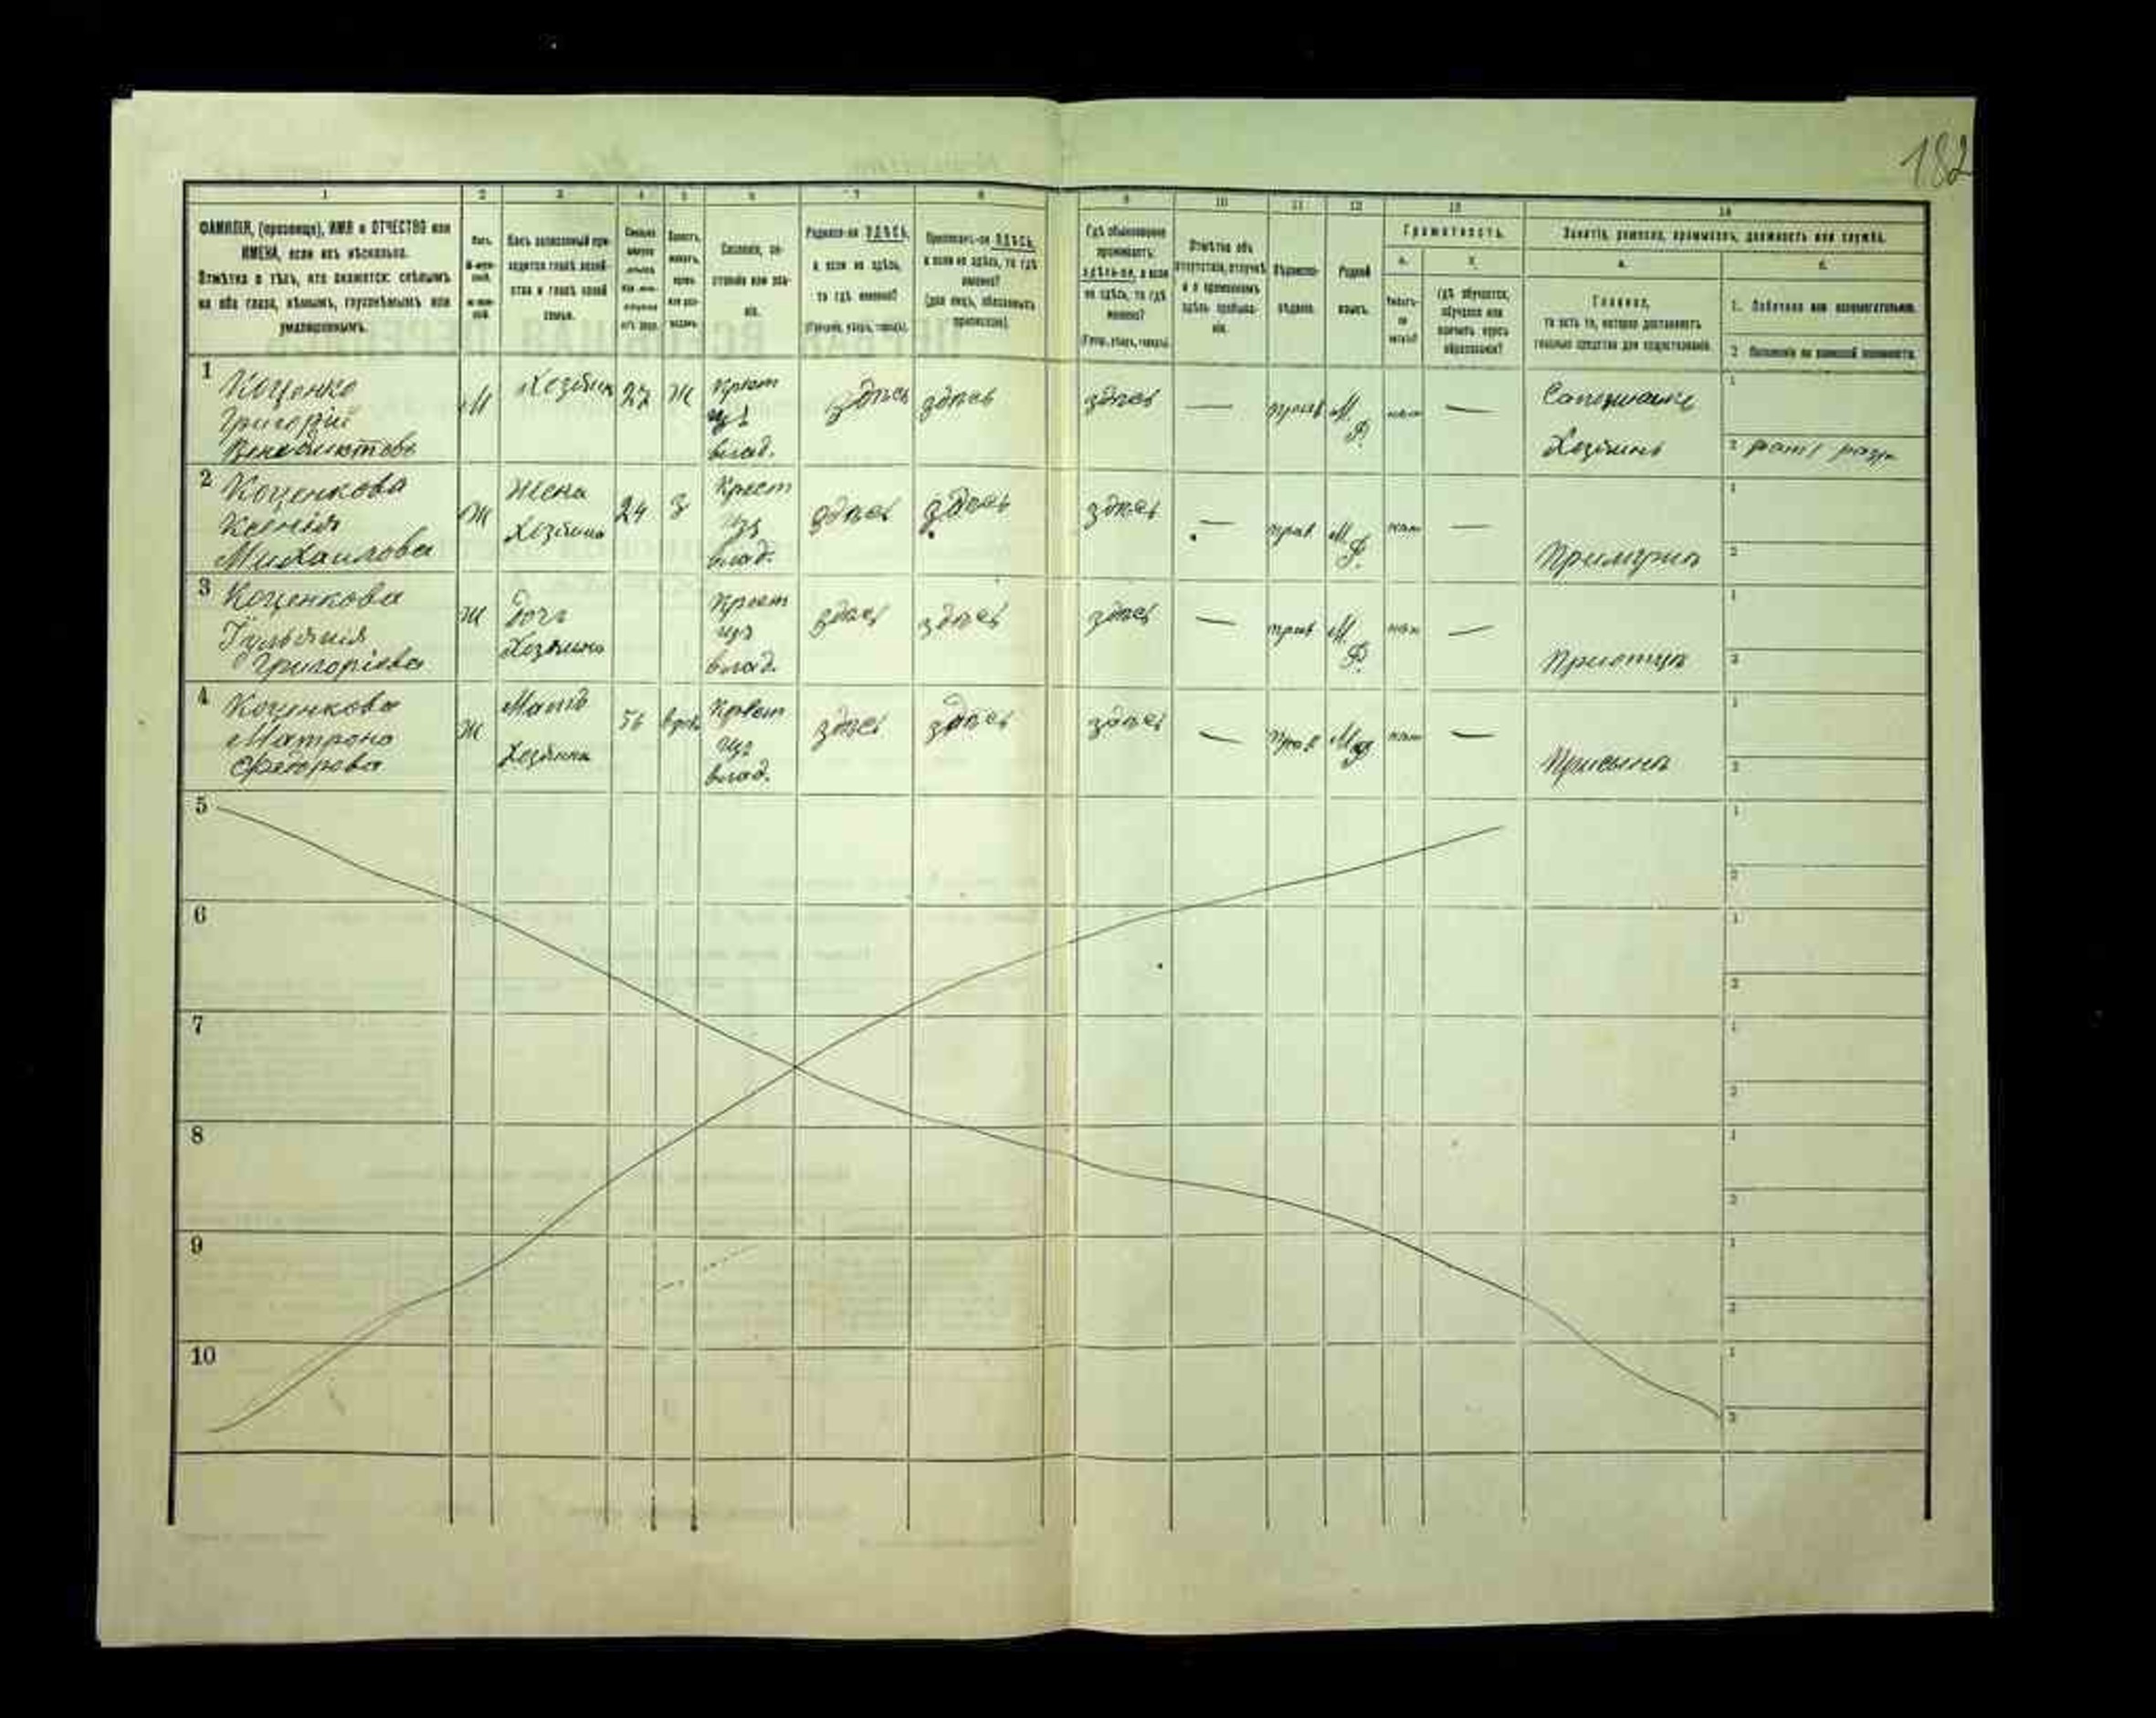 182
1 2 3 4 5 6 7 8 9 10 11 12 13 14
ФАМИЛІЯ, (прозвище), ИМЯ и ОТЧЕСТВО или
ИМЕНА, если ихъ нѣсколько.
Отмѣтка о тѣхъ, кто окажется: слѣпымъ
на оба глаза, нѣмымъ, глухонѣмымъ или
умалишеннымъ.
Полъ.
Какъ записанный при-
ходится главѣ хозяй-
ства и главѣ своей
семьи.
Сословіе, со-
стояніе или зва-
ніе.
Родился-ли ЗДѢСЬ,
а если не здѣсь,
то гдѣ именно?
(Губернія, уѣздъ, городъ).
Приписанъ-ли ЗДѢСЬ,
а если не здѣсь, то гдѣ
именно?
(для лицъ, обязанныхъ
припискою).
Гдѣ обыкновенно
проживаетъ:
здѣсь-ли, а если
не здѣсь, то гдѣ
именно?
(Губер., уѣздъ, городъ).
Отмѣтка объ
отсутствіи, отлучкѣ
и о временномъ
здѣсь пребыва-
ніи.
Вѣроиспо-
вѣданіе.
Родной
языкъ.
Грамотность.
а.
б.
Гдѣ обучается,
обучался или
кончилъ курсъ
образованія?
Занятія, ремесло, промыселъ, должность или служба.
а.
б.
Главное,
то есть то, которое доставляетъ
главныя средства для существованія.
1. Побочное или вспомогательное.
2 Положеніе по воинской повинности.
1 Коценко
Григорій
Венедиктовъ
М
Хозяин
27
Ж
Крест
из
влад.
здѣсь здѣсь здѣсь — прав М.
Р.
нѣт —
Сапожникъ
Хозяинъ
1
2 рат 1 разр
2 Коценкова
Ксенія
Михаилова
Ж
Жена
Хозяина
24
З
Крест
из
влад.
здѣсь здѣсь здѣсь — прав М.
Р.
нѣт —
При мужѣ
1
2
3 Коценкова
Іульянія
Григоріева
Ж
Дочь
Хозяина
Крест
из
влад.
здѣсь здѣсь здѣсь — прав М.
Р.
нѣт —
При отцѣ
1
2
4 Коценкова
Матрона
Федорова
Ж
Мать
Хозяина
56
вдов
Крест
из
влад.
здѣсь здѣсь здѣсь — прав М Р
нѣт —
При сынѣ
1
2
5
1
2
6
1
2
7
1
2
8
1
2
9
1
2
10
1
2